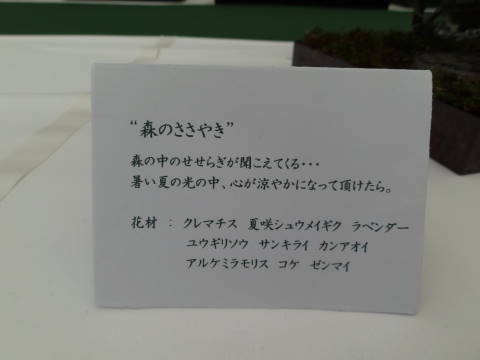 “森のささやき”
森の中のせせらぎが聞こえてくる・・・
暑い夏の光の中、心が涼やかになって頂けたら。
花材 : クレマチス 夏咲シュウメイギク ラベンダー
ユウギリソウ サンキライ カンアオイ
アルケミラモリス コケ ゼンマイ